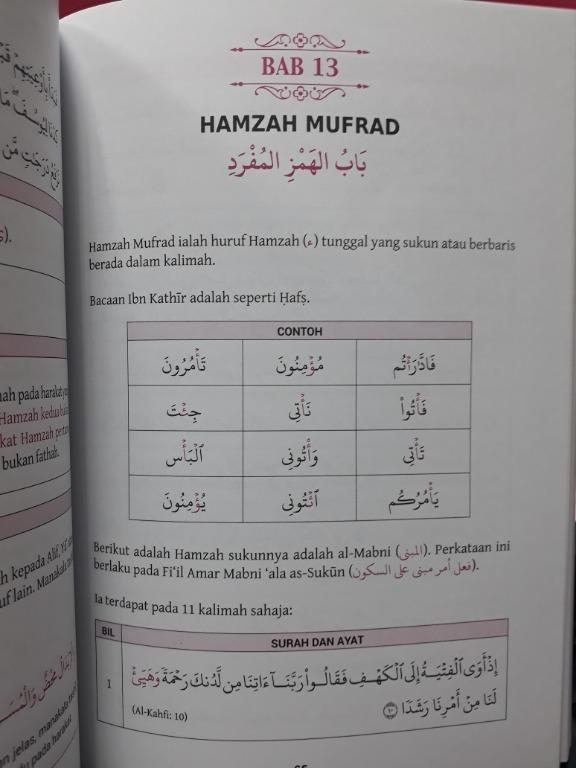 BAB 13
HAMZAH MUFRAD
بَابُ الهَمْزِ المُفْرَدِ
Hamzah Mufrad ialah huruf Hamzah (ء) tunggal yang sukun atau berbaris
berada dalam kalimah.
Bacaan Ibn Kathīr adalah seperti Ḥafṣ.
CONTOH
فَادَّارَأْتُم مُؤْمِنُونَ تَأْمُرُونَ
فَأْتُوا۟ نَأْتِى جِئْتَ
تَأْتِى وَأْتُونِى ٱلْبَأْسِ
يَأْمُرُكُم ٱئْتُونِى يُؤْمِنُونَ
Berikut adalah Hamzah sukunnya adalah al-Mabni (المبنى). Perkataan ini
berlaku pada Fi'il Amar Mabni 'ala as-Sukūn (فعل أمر مبنى على السكون).
Ia terdapat pada 11 kalimah sahaja:
BIL SURAH DAN AYAT
1 إِذْ أَوَى ٱلْفِتْيَةُ إِلَى ٱلْكَهْفِ فَقَالُوا۟ رَبَّنَآ ءَاتِنَا مِن لَّدُنكَ رَحْمَةً وَهَيِّئْ
لَنَا مِنْ أَمْرِنَا رَشَدًا ۝١٠
(Al-Kahfi: 10)
nah pada harakat
Hamzah kedua
kat Hamzah
bukan fathah.
h kepada Alif,
uf lain. Manakala
n jelas, manakala
du pada haraka